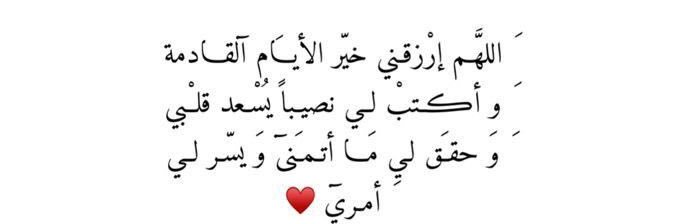 َ اللهَّم إرْزقني خيّر الأيـَام آلقـادمة
َ و أكـتبْ لـي نصيـباً يُسْعد قلْبي
َ وَ حقـَق ليِ مَـا أتـمـَنىَٓ وَ يسّـر لـي
أمـريَٓ ♥️